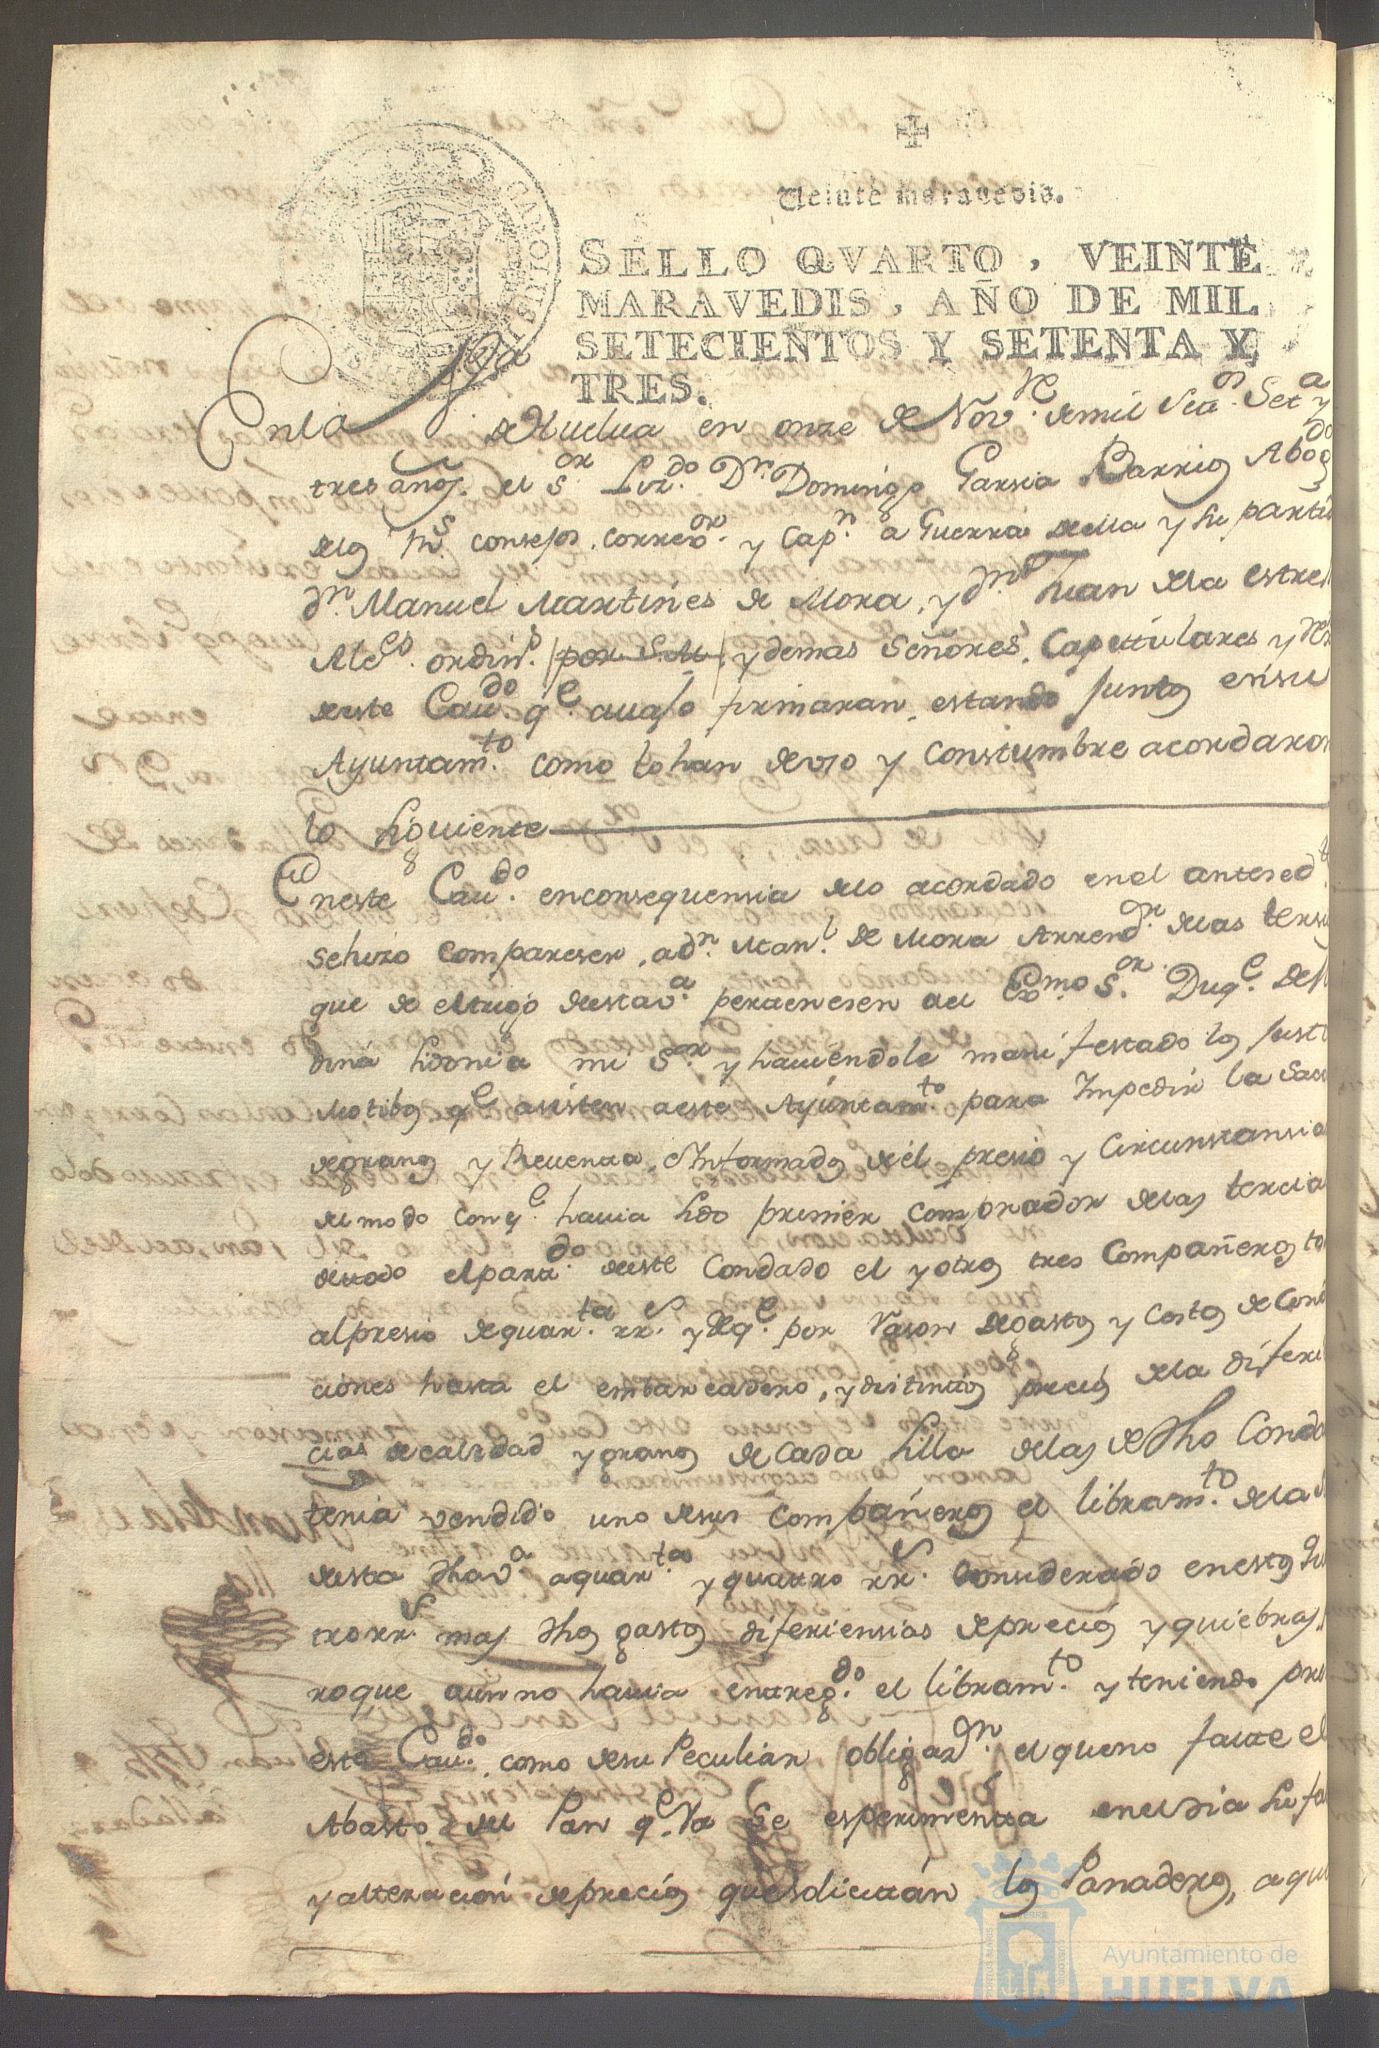 Veinte maravedis.
SELLO QVARTO, VEINTE
MARAVEDIS, AÑO DE MIL
SETECIENTOS Y SETENTA Y
TRES.
En la Va de Huelva en onze de Nove de mil Setos Seta y
tres años el Sor Lizdo Dn Domingo Garsia Barrios Abogdo
de los Rs consejos, corregor y Capn a Guerra de ella y su partid
dn Manuel Martines de Mora, y dn Juan de la estrell
Alces ordins por S. M. y demas Señores Capittulares y
de este Cavdo qe avajo firmaran, estando juntos en su
Ayuntamto como lo han de uso y Constumbre acordaron
lo siguiente
En este Cavdo en consequensia de lo acordado en el antesed
se hizo comparezer, a dn Manl de Mora Arrendor de las tersi
que de el trigo de esta va pertenesen al Exmo Sor Duqe de M
dina sidonia mi Sor y haviendole manifestado los just
Motibos qe asisten a este Ayuntamto para Impedir la Saca
de granos y Reventa, e Informados de él presio y Circunstansia
del modo con qe havia sido primer comprador de las tercia
de todo el partdo de este Condado el y otros tres Compañeros to
al presio de quarta rrs y qe por Rason de gastos y Costos de Cond
ciones hasta el embarcadero, y distintos precios de la diferi
cias de calidad y granos de cada silla de las de dho Conda
tenia vendido uno de sus compañeros el libramto de la d
de esta dha va a quarta y quattro rrs considerado en estos qu
tro rrs mas dhos gastos diferiensias de precios y quiebras,
ro que aun no havia entregdo el libramto y teniendo pre
este Cavdo como de su Peculiar obligazn el que no faltte el
Abasto del Pan qe Ya se esperimentta en el dia su fa
y altteracion de precios que solicittan los Panaderos, a qu
Ayuntamiento de
HUELVA